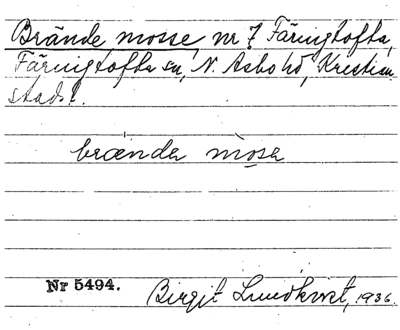 Brände mosse nr 7 Färingtofta,
Färingtofta sn, N. Åsbo hd, Kristian
stads l.
brænda mosa
Nr 5494.
Birgit Lundkvist, 1936.